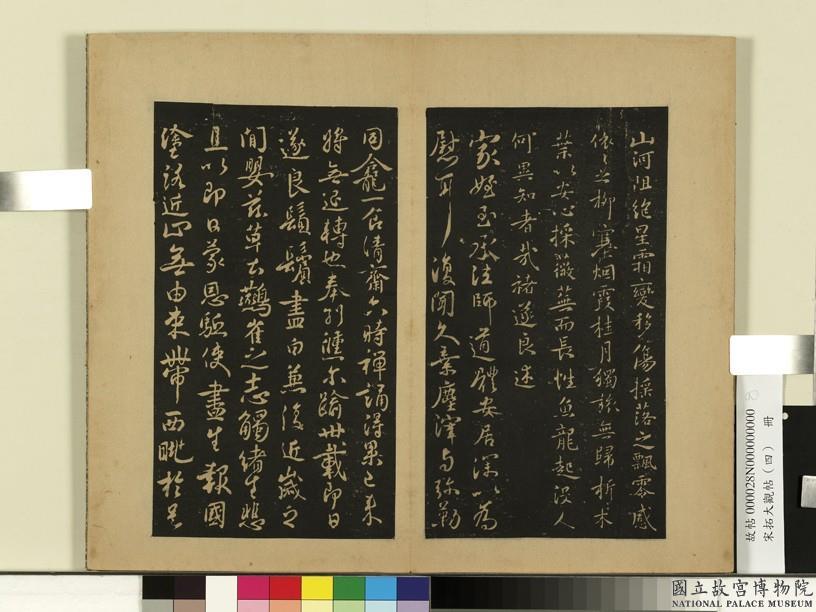 山河阻絶星霜變移傷搖落之飄零感
依依之柳塞烟霞桂月獨旅無歸折木
葉以安心採薇蕪而長性魚龍起没人
何異知者哉褚遂良述
家姪至承法師道體安居深以為
慰耳復聞久棄塵滓与弥勒
同龕一食清齋六時禪誦得果已來
將無退轉也奉別倐尔踰卅載即日
遂良鬚鬢盡白兼復近歲之
間嬰兹草土鷰雀之志觸緒生悲
且以即日蒙恩驅使盡生報國
塗路近止無由束帶西眺於悒
故帖 000028N000000000
宋拓大觀帖(四) 冊
國立故宮博物院
NATIONAL PALACE MUSEUM